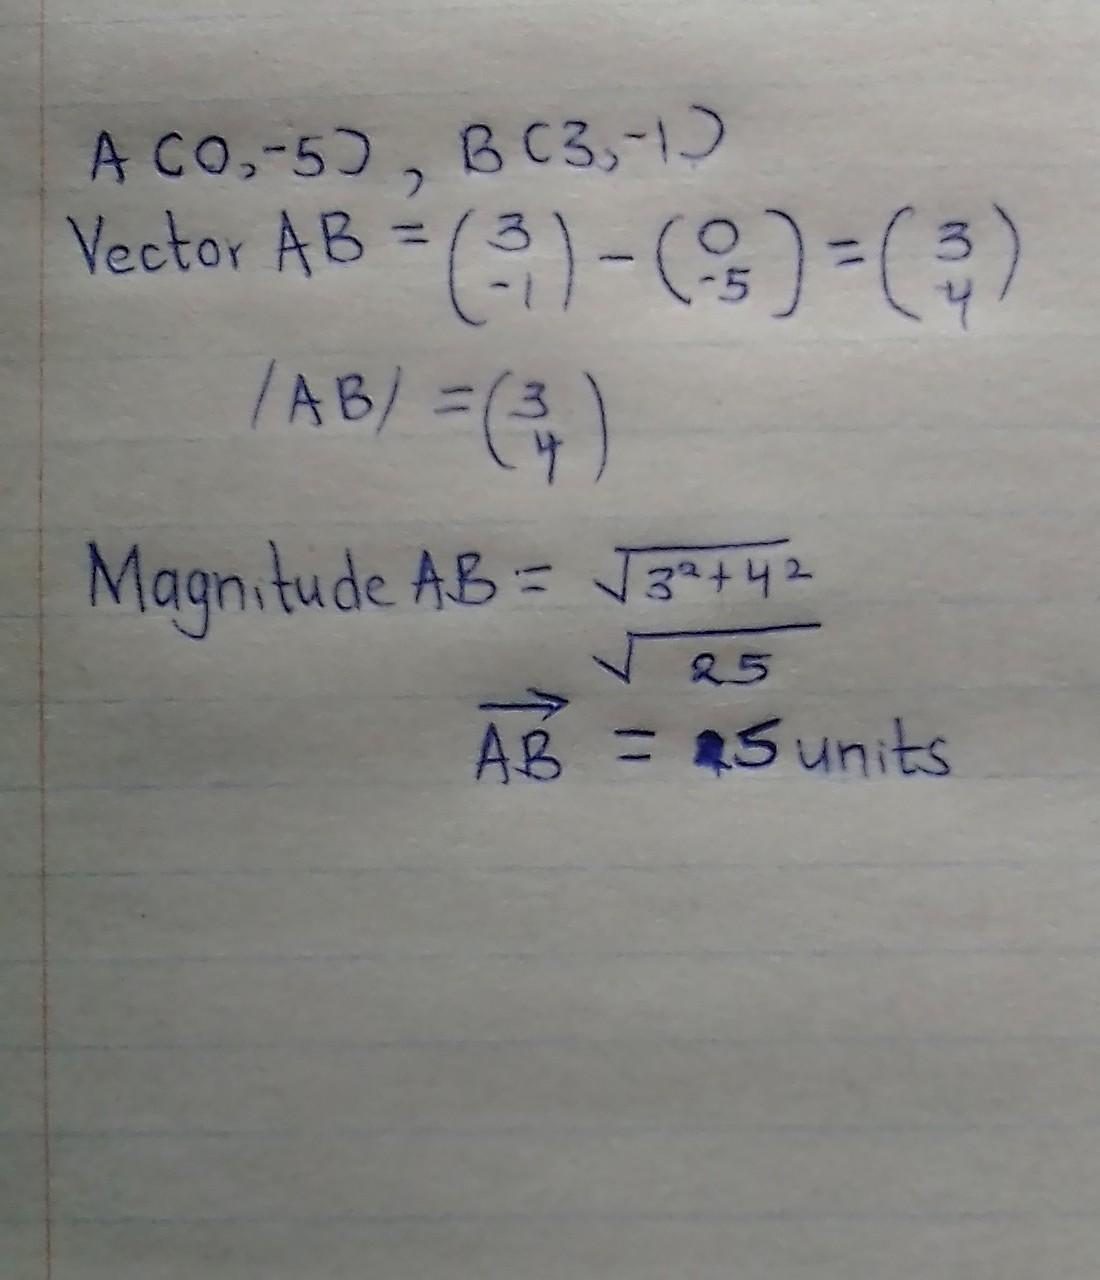 A (0,-5) , B (3,-1)
Vector AB = (3 -1) - (0 -5) = (3 4)
/AB/ = (3 4)
Magnitude AB = √3²+4²
√25
AB = 5 units